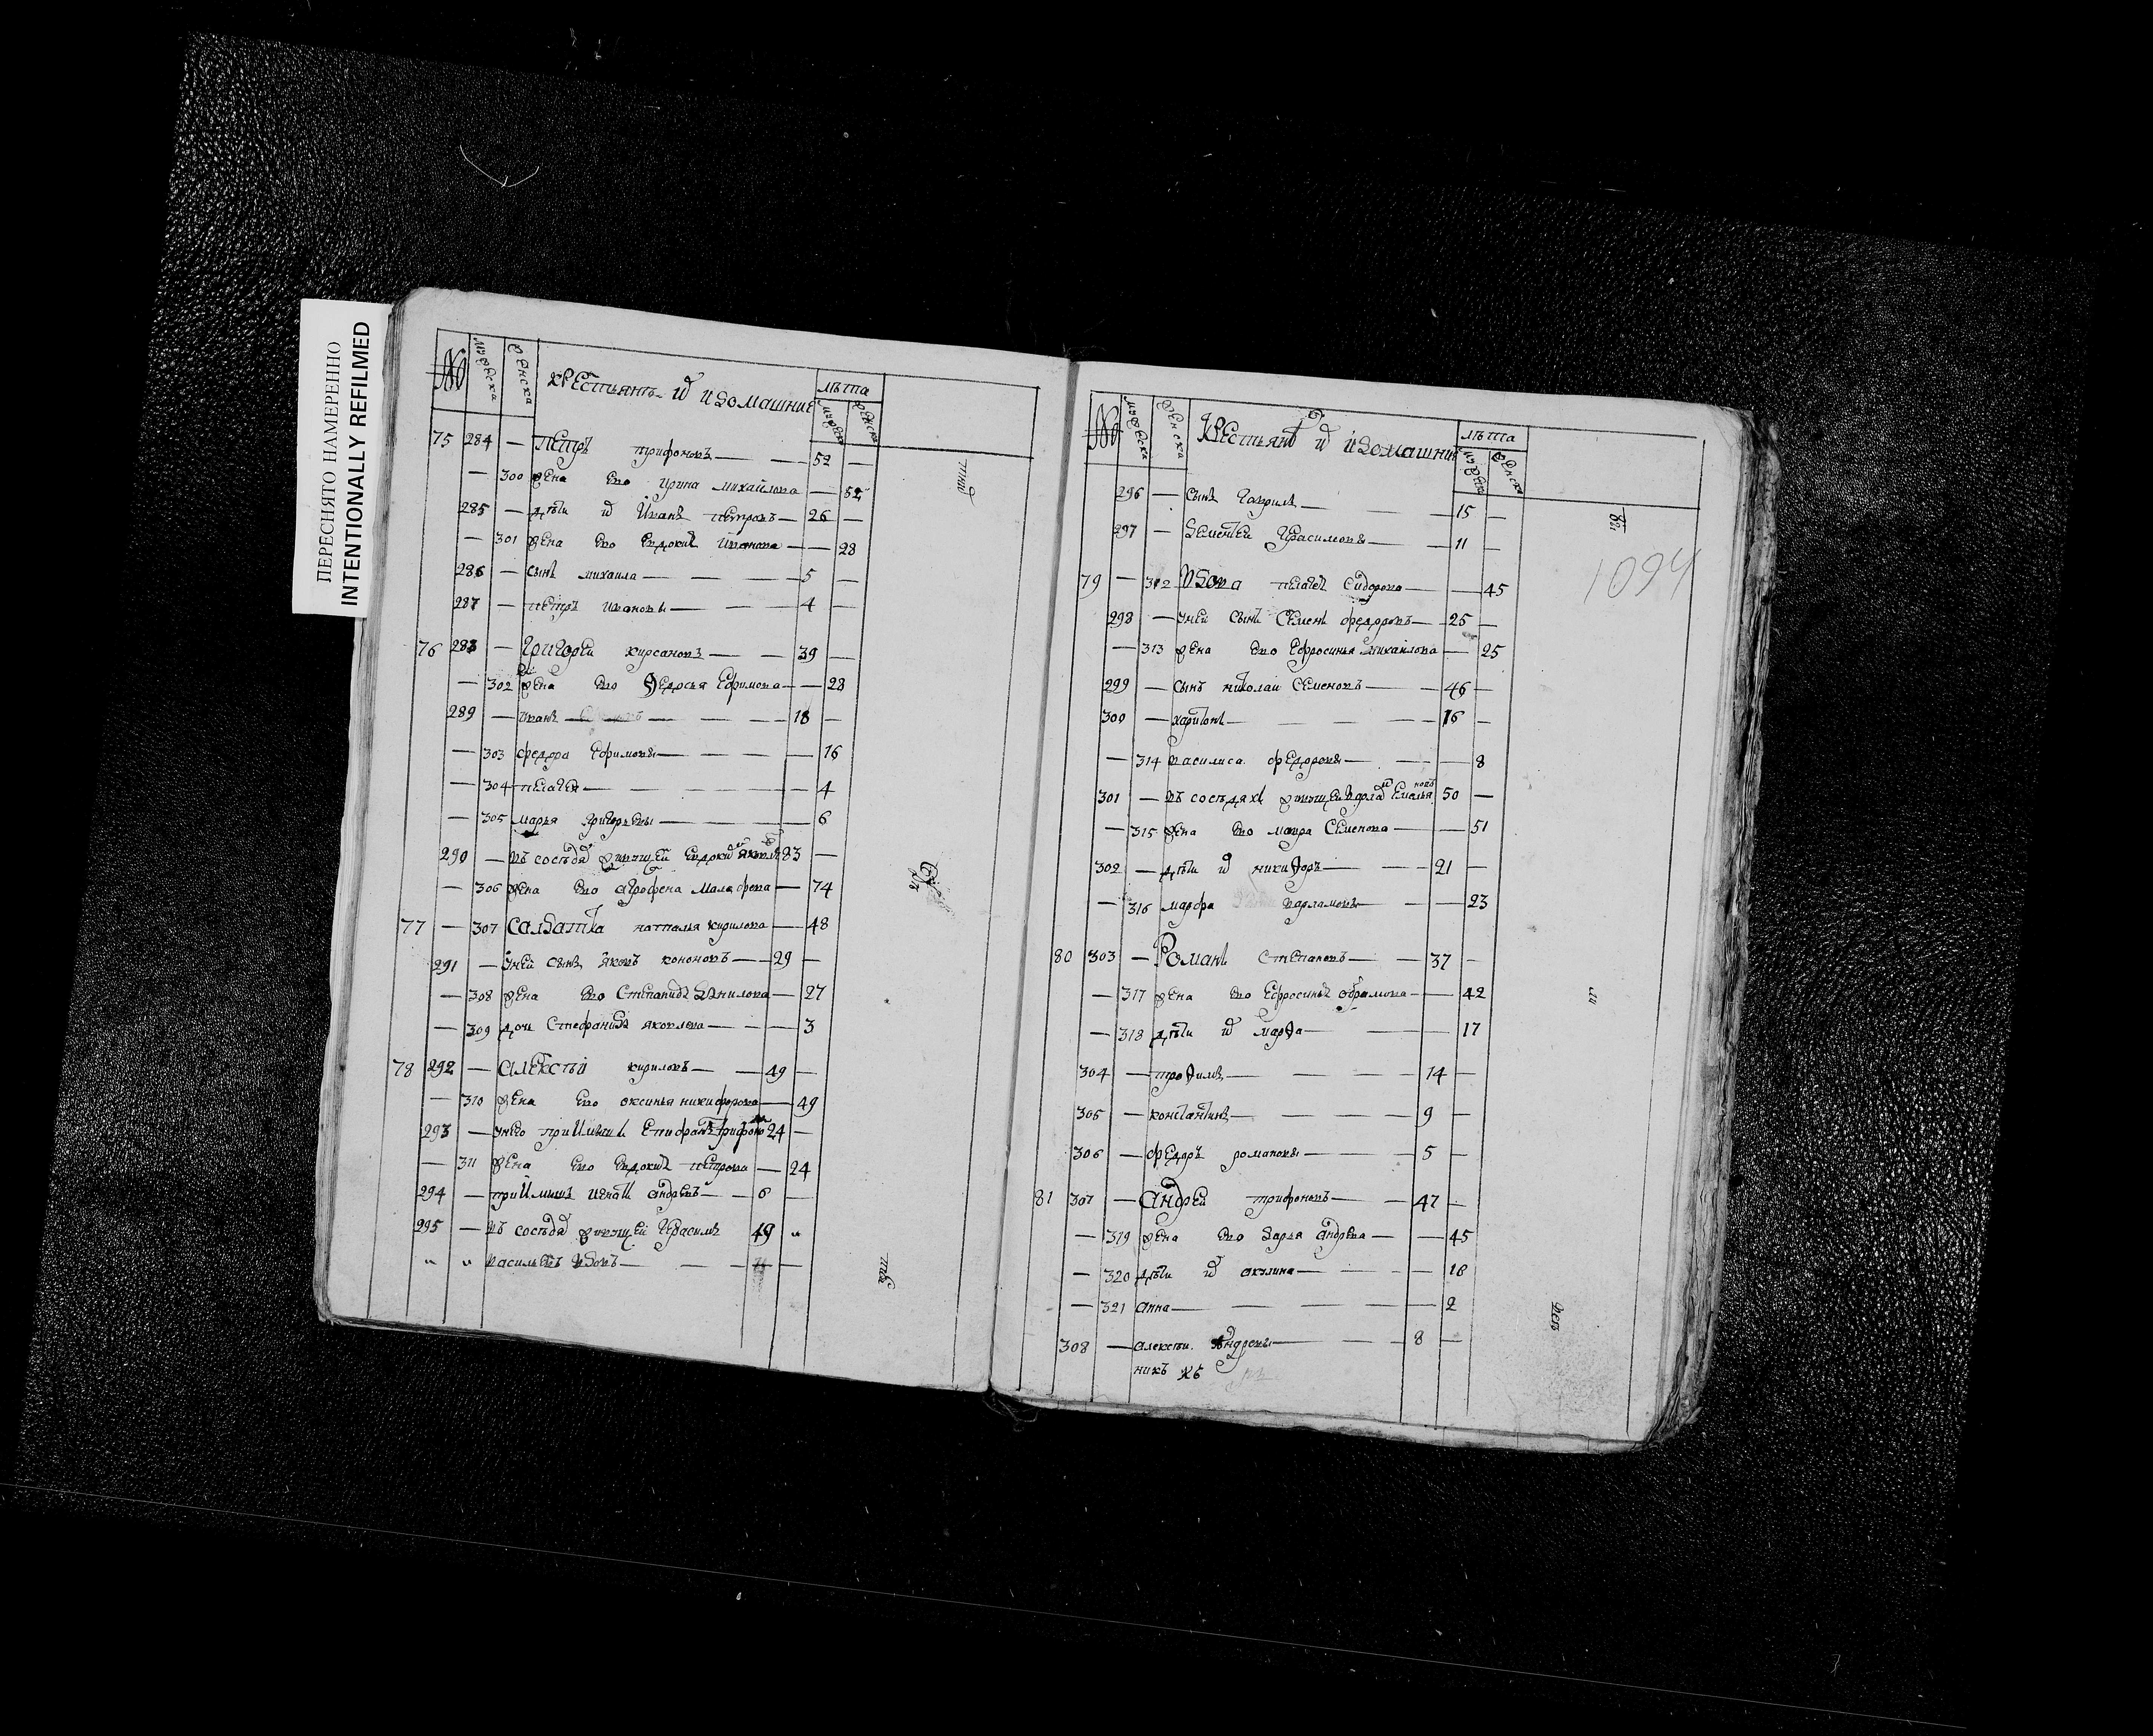 ПЕРЕСНЯТО НАМЕРЕННО
INTENTIONALLY REFILMED
№ мужеска женска крестьянъ и их домашние лѣта мужеска женска
75 284 — Петръ трифоновъ — — 52 —
— 300 жена ево ирина михайлова — 52
285 — дѣти их Иванъ петровъ — 26 —
— 301 жена ево евдокия Иванова — — 28
286 — сынъ михаила — — — 5 —
287 — петръ ивановы — — — 4 —
76 288 — Григорей кирсановъ — — 39 —
— 302 жена ево Ѳедосья Ефимова — — 28
289 — иванъ — — — — 18 —
— 303 федора Ефимовы — — — — 16
— 304 пелагея — — — — — 4
— 305 марья григорьевы — — — — 6
290 — въ соседях живущей евдоким яковлев 83 —
— 306 жена ево агрофена малафеева — 74
77 — 307 Салдатка наталья кирилова — 48
291 — у ней сынъ яковъ кононовъ — 29 —
— 308 жена ево Степанида данилова — 27
— 309 дочь Стефанида яковлева — — — 3
78 292 — алексѣй кириловъ — — 49 —
— 310 жена ево оксинья никифорова — 49
293 — у нево приимышъ Епифанъ трифонов 24 —
— 311 жена ево евдокия петрова — 24
294 — приимышъ игнатий андреевъ — 6 —
295 — въ соседях живущей Герасимъ 49 "
" " васильевъ вдовъ — — — —
№ мужеска женска крестьянъ и их домашние лѣта мужеска женска
1094
296 — сынъ гаврила — — — 15 —
297 — дементей Герасимовы — — 11 —
79 — 312 вдова пелагея Сидорова — — 45
298 — у ней сынъ Семенъ федоровъ — 25 —
— 313 жена ево Ефросинья михайлова — 25
299 — сынъ николай Семеновъ — — 46 —
300 — харитонъ — — — — 16 —
— 314 василиса федоровы — — — 8
301 — въ соседяхъ живущей варламъ Емельяновъ 50 —
— 315 жена ево мавра Семенова — — 51
302 — дѣти их никиѲоръ — — — 21 —
— 316 марфа варламовы — — — 23
80 303 — Романъ Степановъ — — 37 —
— 317 жена ево Ефросинья ефримова — — 42
— 318 дѣти их марѲа — — — 17
304 — троѲимъ — — — — 14 —
305 — константинъ — — — — 9 —
306 — федоръ романовы — — — 5 —
81 307 — андрей трифоновъ — — 47 —
— 319 жена ево дарья андреева — — 45
— 320 дѣти их акулина — — — 18
— 321 анна — — — — — 2
308 — алексѣй андреевы — — — 8 —
никъ